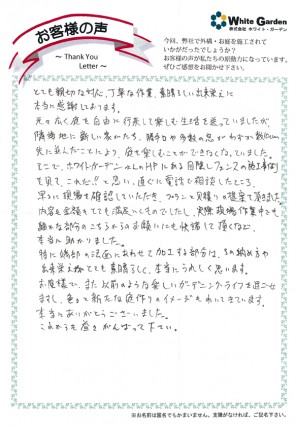 お客様の声
～ Thank You
Letter ～
White Garden
株式会社 ホワイト・ガーデン
今回、弊社で外構・お庭を施工されて
いかがだったでしょうか？
お客様の声が私たちの原動力になっています。
ぜひご感想をお聞かせ下さい。
とても親切な対応、丁寧な作業、素晴らしい出来栄えに
本当に感謝しております。
元々広く庭を自由に行き来して楽しむ生活を送っていましたが、
隣地に新しい家がたち、
先に並んだことにより、庭を楽しむことができなくなっていました。
そこで、ホワイトガーデンさんのHPにある目隠しフェンスの施工事例
を見て、これだ!!と思い、直ぐに電話で相談したところ、
早々に現場を確認していただき、プランと見積りの提案を頂きました。
内容も金額もとても満足いくものでしたし、実際現場作業中も
細かな部分のこちらからのお願いにも快く対応して頂くなど、
本当に助かりました。
特に端部の法面にあわせて加工する部分は、その納め方や
出来栄えがとても素晴らしく、本当にうれしく思います。
お陰様で、また以前のような楽しいガーデニングライフを過ごせ
ますし、色々と新たな庭作りのイメージもわいてきています。
本当にありがとうございました。
これからも皆さんがんばって下さい。
※お名前は匿名でもかまいません。支障がなければ、ご記名下さい。